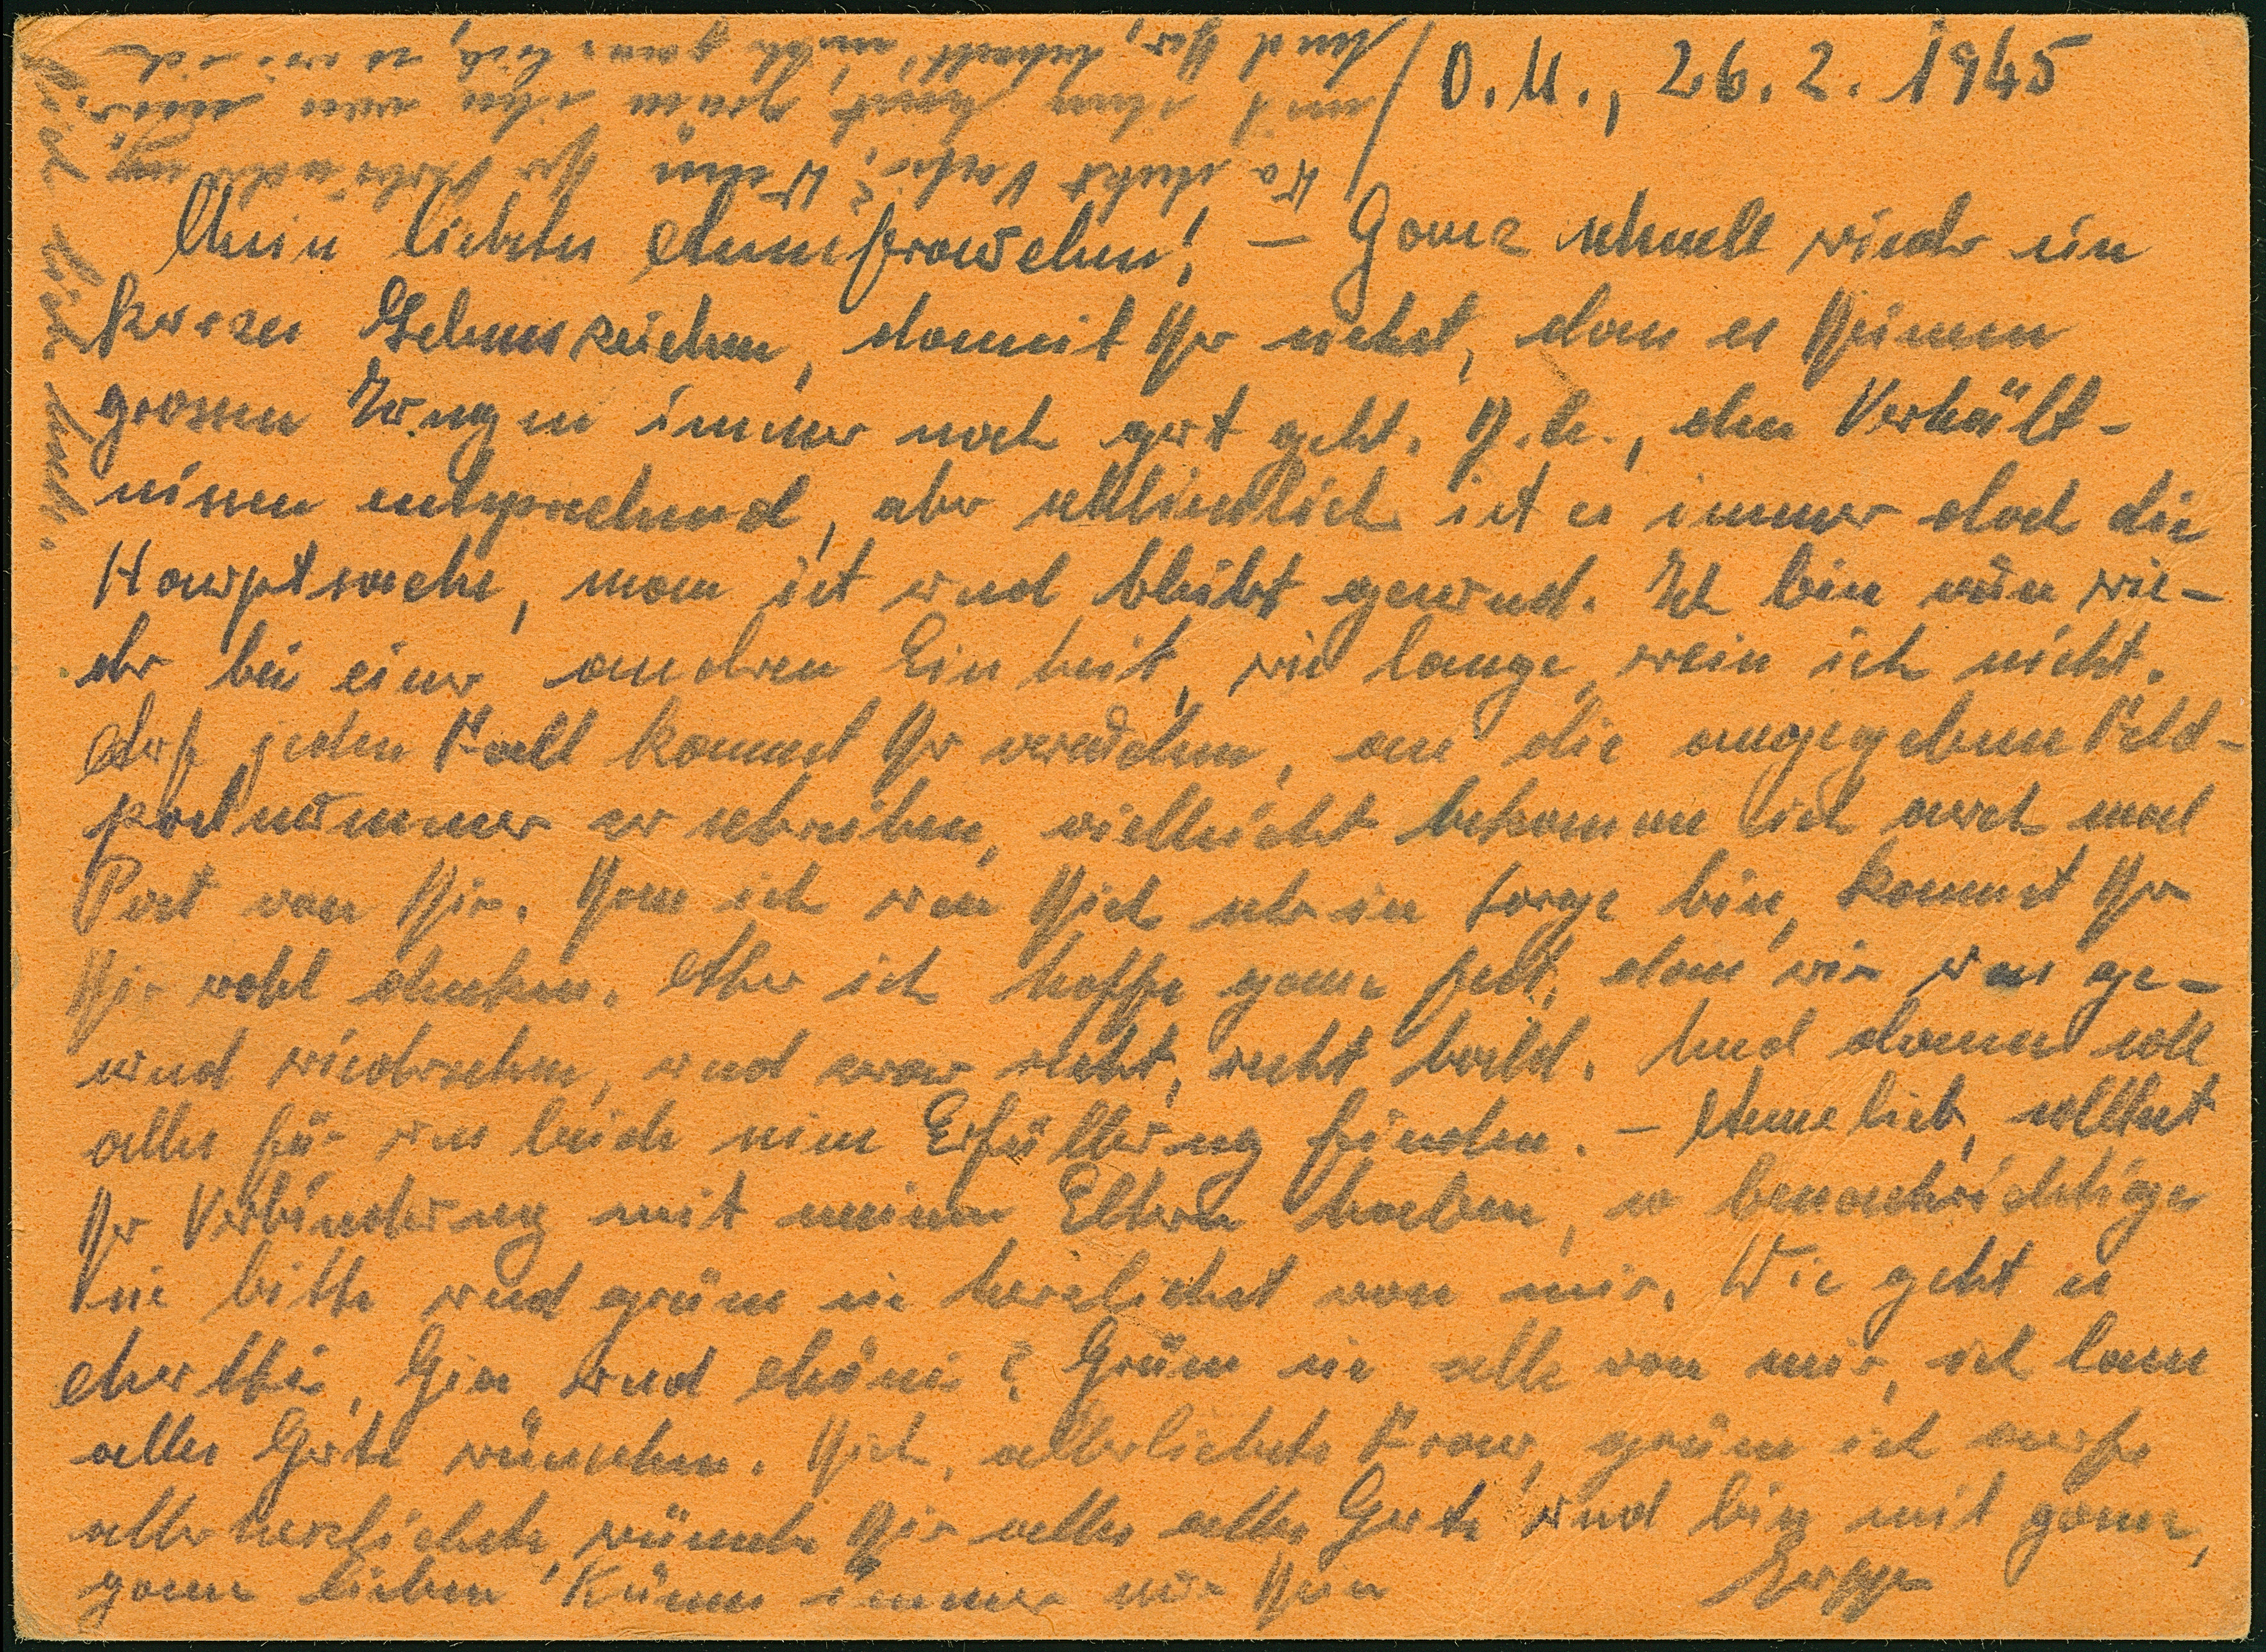 O.U., 26.2.1945
Mein liebstes Annefrauchen! – Ganz schnell wieder ein
kurzes Lebenszeichen, damit Du siehst, dass es Deinem
grossen Jungen immer noch gut geht. D.h., den Verhält-
nissen entsprechend, aber schliesslich ist es immer doch die
Hauptsache, man ist und bleibt gesund. Ich bin nun wie-
der bei einer anderen Einheit, wie lange, weiss ich nicht.
Auf jeden Fall kannst Du versuchen, an die angegebene Feld-
postnummer zu schreiben, vielleicht bekomme ich auch mal
Post von Dir. Dass ich um Dich sehr in Sorge bin, kannst Du
Dir wohl denken. Aber ich hoffe ganz fest, dass wir uns ge-
sund wiedersehen, und zwar recht, recht bald. Und dann soll
alles für uns beide seine Erfüllung finden. – Annelieb, solltest
Du Verbindung mit meinen Eltern haben, so benachrichtige
sie bitte und grüsse sie herzlichst von mir. Wie geht es
und ? Grüsse sie alle von mir, ich lasse
alles Gute wünschen. Dich, allerliebste Frau, grüsse ich aufs
allerherzlichste, wünsche Dir alles alles Gute und bin mit ganz,
ganz lieben Küssen immer nur Dein
Wo steckt Vater? Wenn Du Verbindung
mit ihm hast, grüsse ihn von mir.
Und Du, behalt' mich ganz lieb, so wie ich